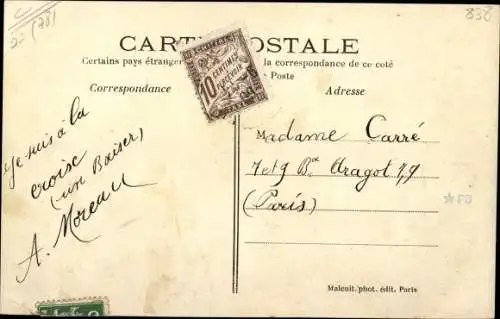 CARTE POSTALE
Certains pays étrangers la correspondance de ce coté
Poste
Correspondance
Adresse
CHIFFRE
10 CENTIMES
A PERCEVOIR
Je suis à la
croise
(un Baiser)
A. Moreau
Madame Carré
7 et 9 Bd Arago 7,9
(Paris)
Malcuit, phot. édit. Paris